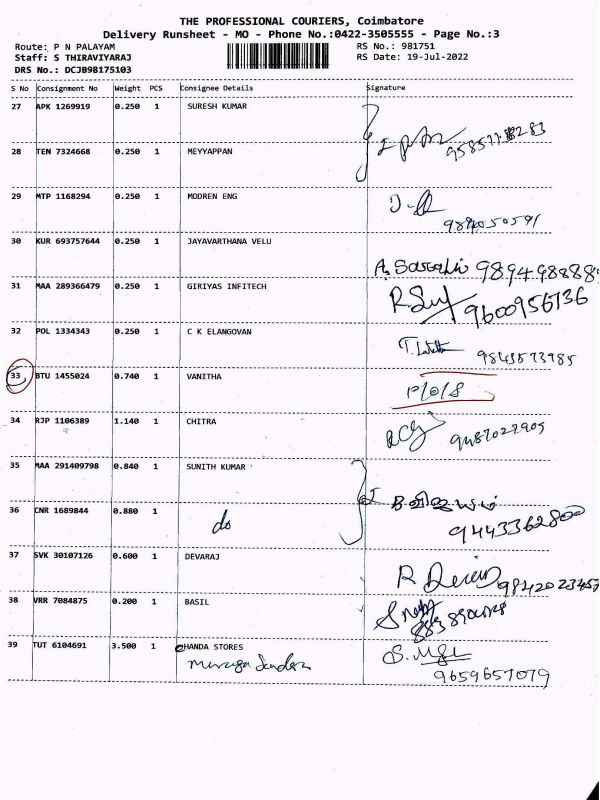 THE PROFESSIONAL COURIERS, Coimbatore
Delivery Runsheet - MO - Phone No.:0422-3505555 - Page No.:3
Route: P N PALAYAM RS No.: 981751
Staff: S THIRAVIYARAJ RS Date: 19-Jul-2022
DRS No.: DCJB98175103
S No Consignment No Weight PCS Consignee Details Signature
27 APK 1269919 0.250 1 SURESH KUMAR
28 TEN 7324668 0.250 1 MEYYAPPAN
29 MTP 1168294 0.250 1 MODREN ENG
30 KUR 693757644 0.250 1 JAYAVARTHANA VELU
31 MAA 289366479 0.250 1 GIRIYAS INFITECH
9600956136
32 POL 1334343 0.250 1 C K ELANGOVAN
33 BTU 1455024 0.740 1 VANITHA
34 RJP 1106389 1.140 1 CHITRA
35 MAA 291409798 0.840 1 SUNITH KUMAR
36 CNR 1689844 0.880 1 do
9443362800
37 SVK 30107126 0.600 1 DEVARAJ
38 VRR 7084875 0.200 1 BASIL
39 TUT 6104691 3.500 1 CHANDA STORES
9659657079